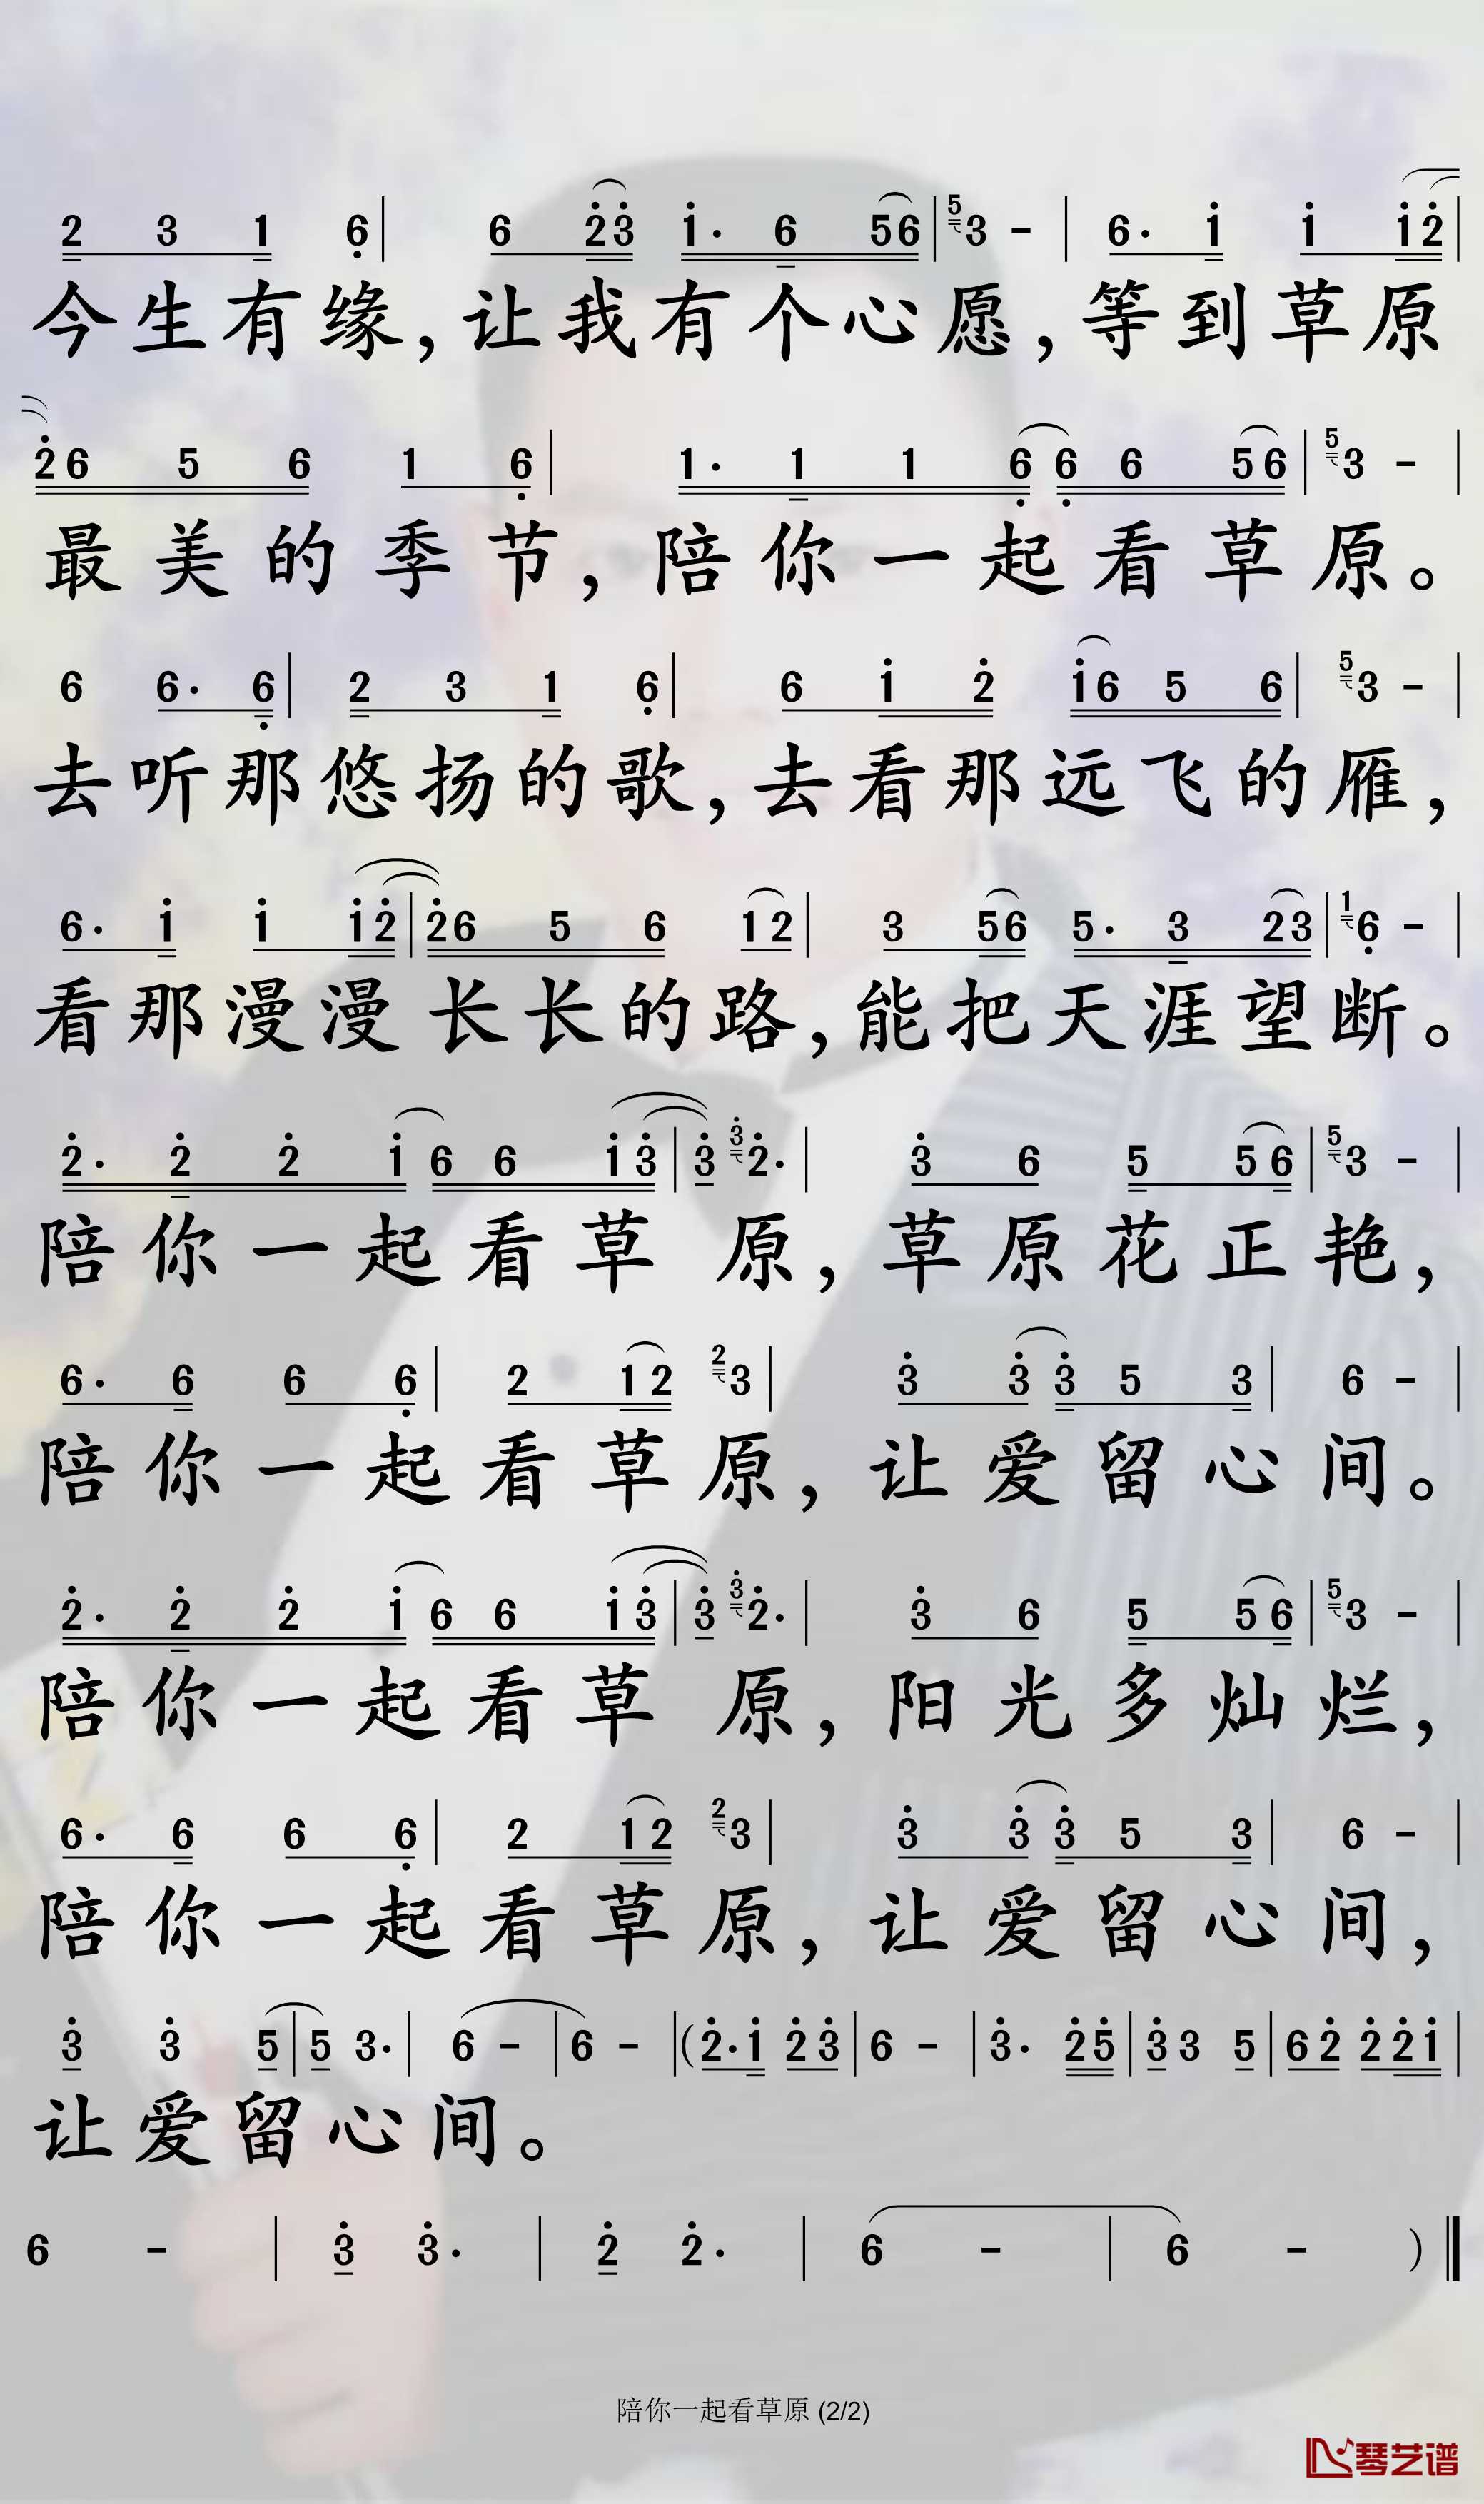 2 3 1 6 | 6 2 3 1· 6 5 6 | 5 3 - | 6· 1 1 1 2 |
今生有缘,让我有个心愿,等到草原
2 6 5 6 1 6 | 1· 1 1 6 6 6 5 6 | 5 3 - |
最美的季节,陪你一起看草原。
6 6· 6 | 2 3 1 6 | 6 1 2 1 6 5 6 | 5 3 - |
去听那悠扬的歌,去看那远飞的雁,
6· 1 1 1 2 | 2 6 5 6 1 2 | 3 5 6 5· 3 2 3 | 1 6 - |
看那漫漫长长的路,能把天涯望断。
2· 2 2 1 6 6 1 3 | 3 3 2· | 3 6 5 5 6 | 5 3 - |
陪你一起看草 原,草原花正艳,
6· 6 6 6 | 2 1 2 2 3 | 3 3 3 5 3 | 6 - |
陪你一起看草原,让爱留心间。
2· 2 2 1 6 6 1 3 | 3 3 2· | 3 6 5 5 6 | 5 3 - |
陪你一起看草 原,阳光多灿烂,
6· 6 6 6 | 2 1 2 2 3 | 3 3 3 5 3 | 6 - |
陪你一起看草原,让爱留心间,
3 3 5 | 5 3· | 6 - | 6 - | (2· 1 2 3 | 6 - | 3· 2 5 | 3 3 5 | 6 2 2 2 1 |
让爱留心间。
6 - | 3 3· | 2 2· | 6 - | 6 - ) ‖
陪你一起看草原 (2/2)
琴艺谱